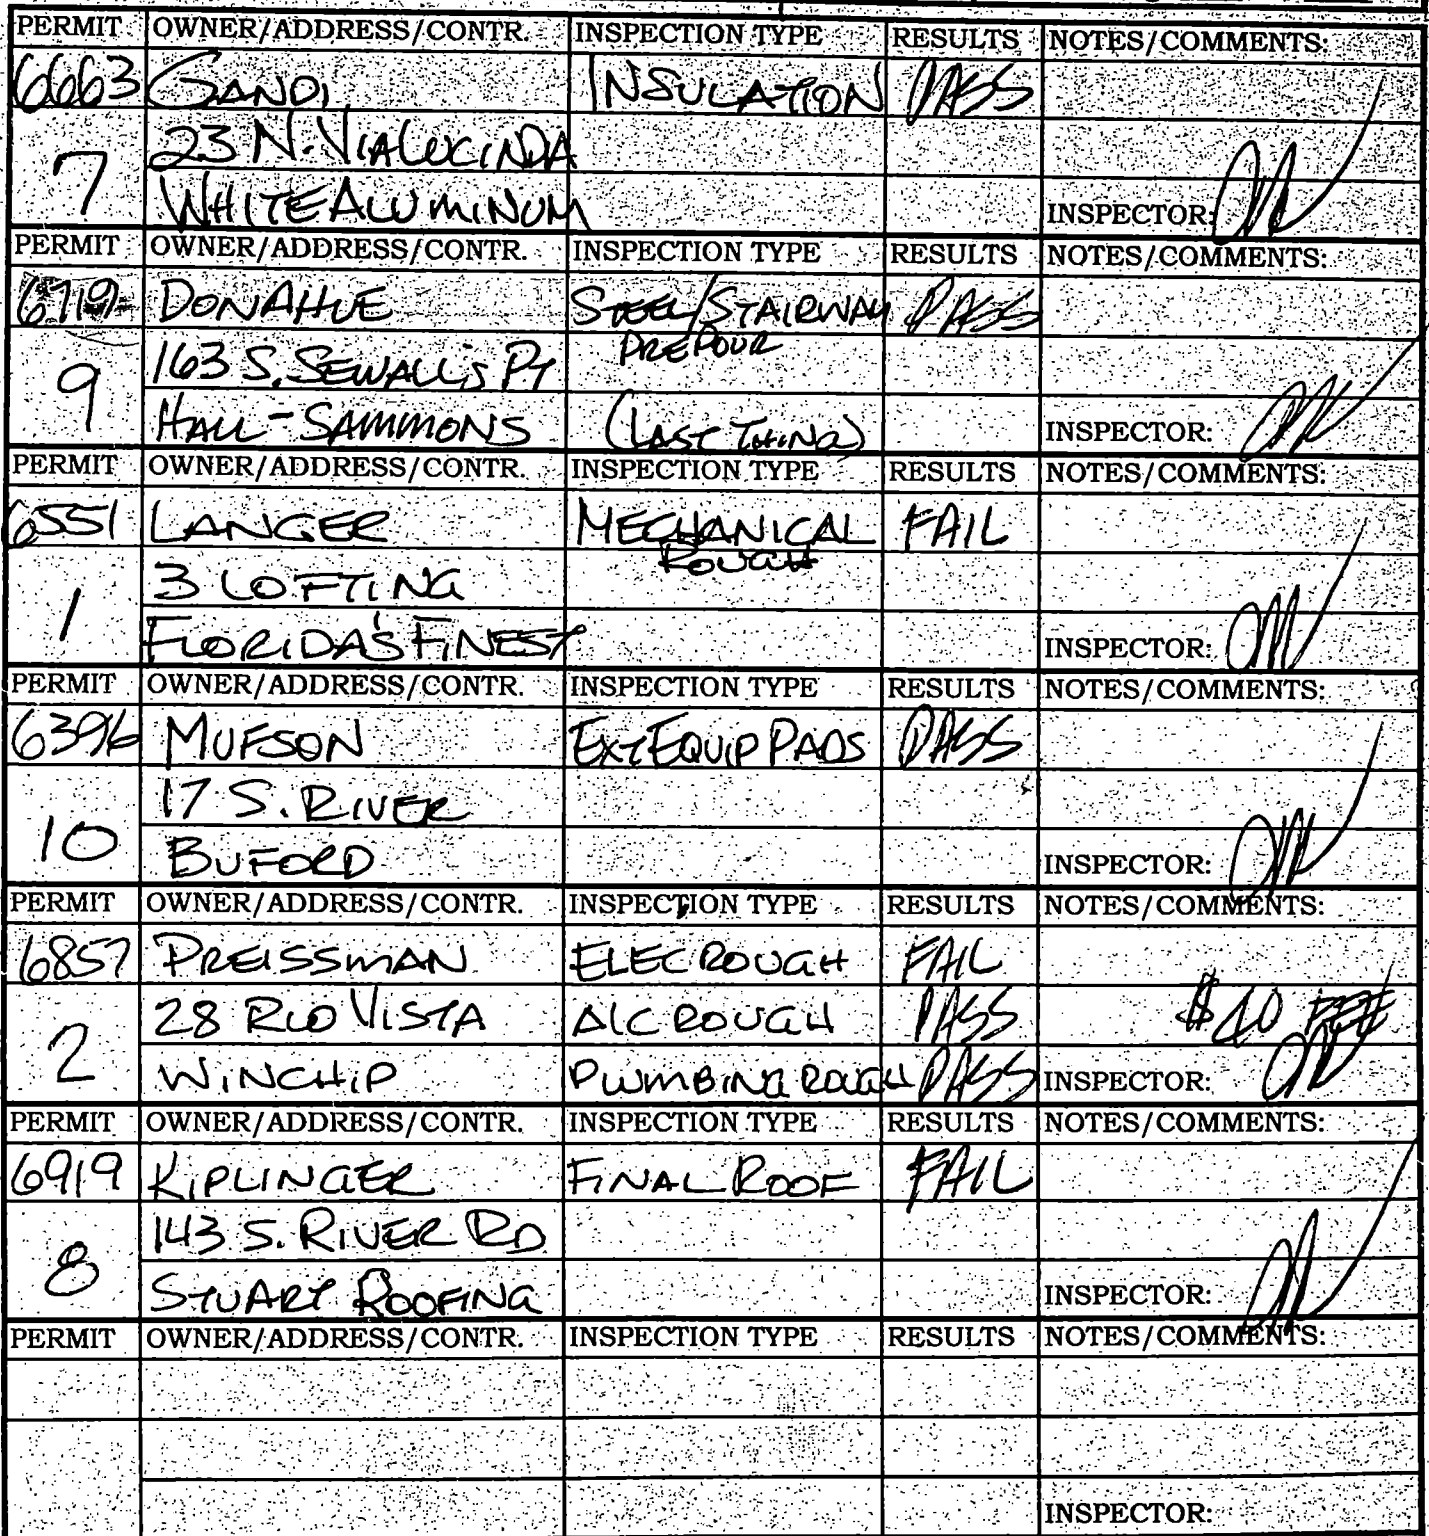 PERMIT OWNER/ADDRESS/CONTR. INSPECTION TYPE RESULTS NOTES/COMMENTS:
6663 GANDI INSULATION PASS
23 N. VIA LUCINDA
7 WHITE ALUMINUM INSPECTOR:
PERMIT OWNER/ADDRESS/CONTR. INSPECTION TYPE RESULTS NOTES/COMMENTS:
6719 DONAHUE STEEL/STAIRWAY PASS
163 S. SEWALL'S PT PREPOUR
9 HALL-SAMMONS (LAST THING) INSPECTOR:
PERMIT OWNER/ADDRESS/CONTR. INSPECTION TYPE RESULTS NOTES/COMMENTS:
6551 LANGER MECHANICAL FAIL
3 LOFTING ROUGH
1 FLORIDA'S FINEST INSPECTOR:
PERMIT OWNER/ADDRESS/CONTR. INSPECTION TYPE RESULTS NOTES/COMMENTS:
6396 MUFSON EXT EQUIP PADS PASS
17 S. RIVER
10 BUFORD INSPECTOR:
PERMIT OWNER/ADDRESS/CONTR. INSPECTION TYPE RESULTS NOTES/COMMENTS:
6857 PREISSMAN ELEC ROUGH FAIL
28 RIO VISTA A/C ROUGH PASS $40 FEE
2 WINCHIP PLUMBING ROUGH PASS INSPECTOR:
PERMIT OWNER/ADDRESS/CONTR. INSPECTION TYPE RESULTS NOTES/COMMENTS:
6919 KIPLINGER FINAL ROOF FAIL
143 S. RIVER RD
8 STUART ROOFING INSPECTOR:
PERMIT OWNER/ADDRESS/CONTR. INSPECTION TYPE RESULTS NOTES/COMMENTS:
INSPECTOR: